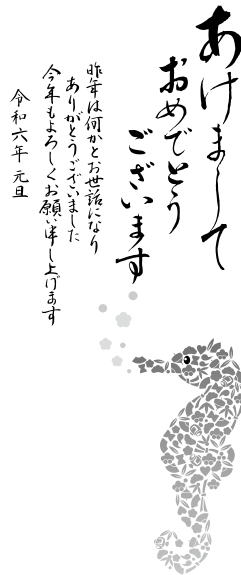 あけまして
おめでとう
ございます
昨年は何かとお世話になり
ありがとうございました
今年もよろしくお願い申し上げます
令和六年 元旦